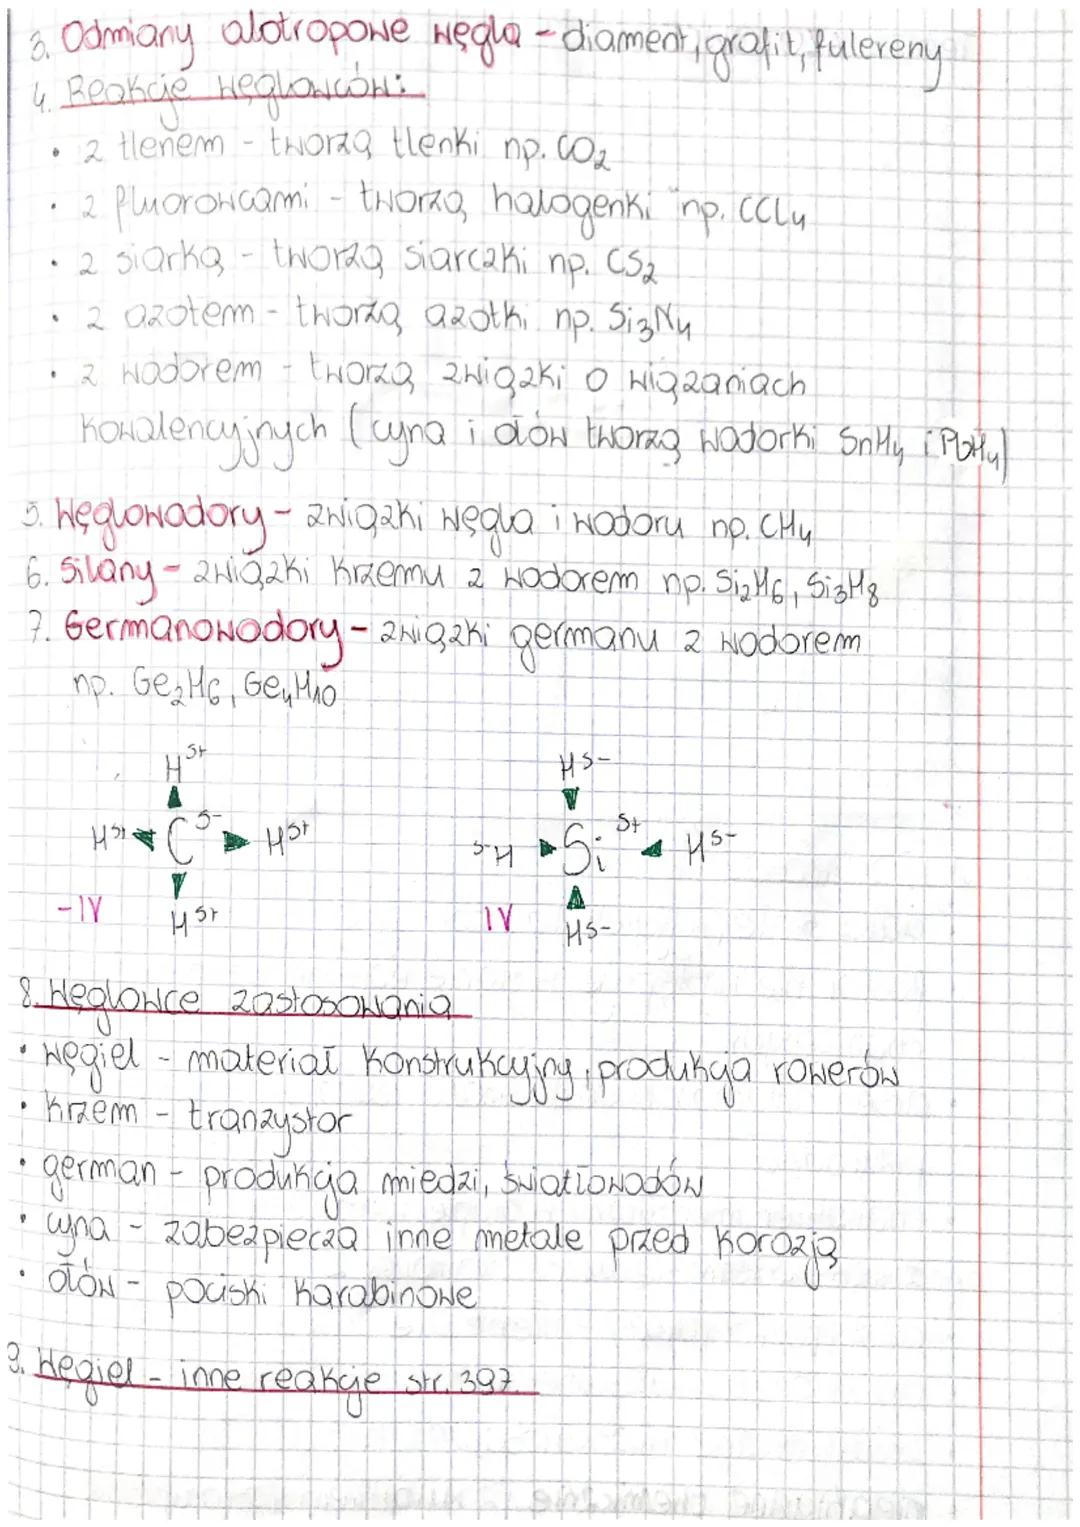 3. Odmiany alotropowe węgla - diament, grafit, fulereny
4. Reakcje węglowców:
• z tlenem - tworzą tlenki np. CO₂
• z fluorowcami - tworzą halogenki np. CCl₄
• z siarką - tworzą siarczki np. CS₂
• z azotem - tworzą azotki np. Si₃N₄
• z wodorem - tworzą związki o wiązaniach
kowalencyjnych (cyna i ołów tworzą wodorki SnH₄ i PbH₄)
5. Węglowodory - związki węgla i wodoru np. CH₄
6. Silany - związki krzemu z wodorem np. Si₂H₆, Si₃H₈
7. Germanowodory - związki germanu z wodorem
np. Ge₂H₆, Ge₄H₁₀
H δ+ H δ-
H δ+ C δ- H δ+ δ- H Si δ+ H δ-
-IV H δ+ IV H δ-
8. Węglowce zastosowania
• węgiel - materiał konstrukcyjny, produkcja rowerów
• krzem - tranzystor
• german - produkcja miedzi, światłowodów
• cyna - zabezpiecza inne metale przed korozją
• ołów - pociski karabinowe
9. Węgiel - inne reakcje str. 397